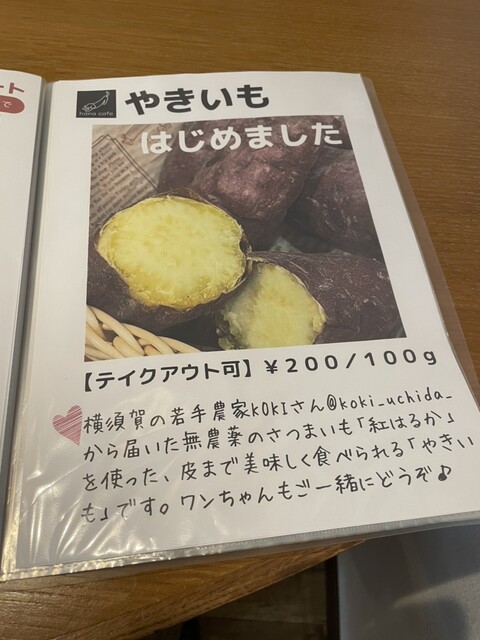 ート
で
hana cafe
やきいも
はじめました
【テイクアウト可】￥２００／１００ｇ
横須賀の若手農家KOKIさん@koki_uchida_
から届いた無農薬のさつまいも「紅はるか」
を使った、皮まで美味しく食べられる「やきい
も」です。ワンちゃんもご一緒にどうぞ♪